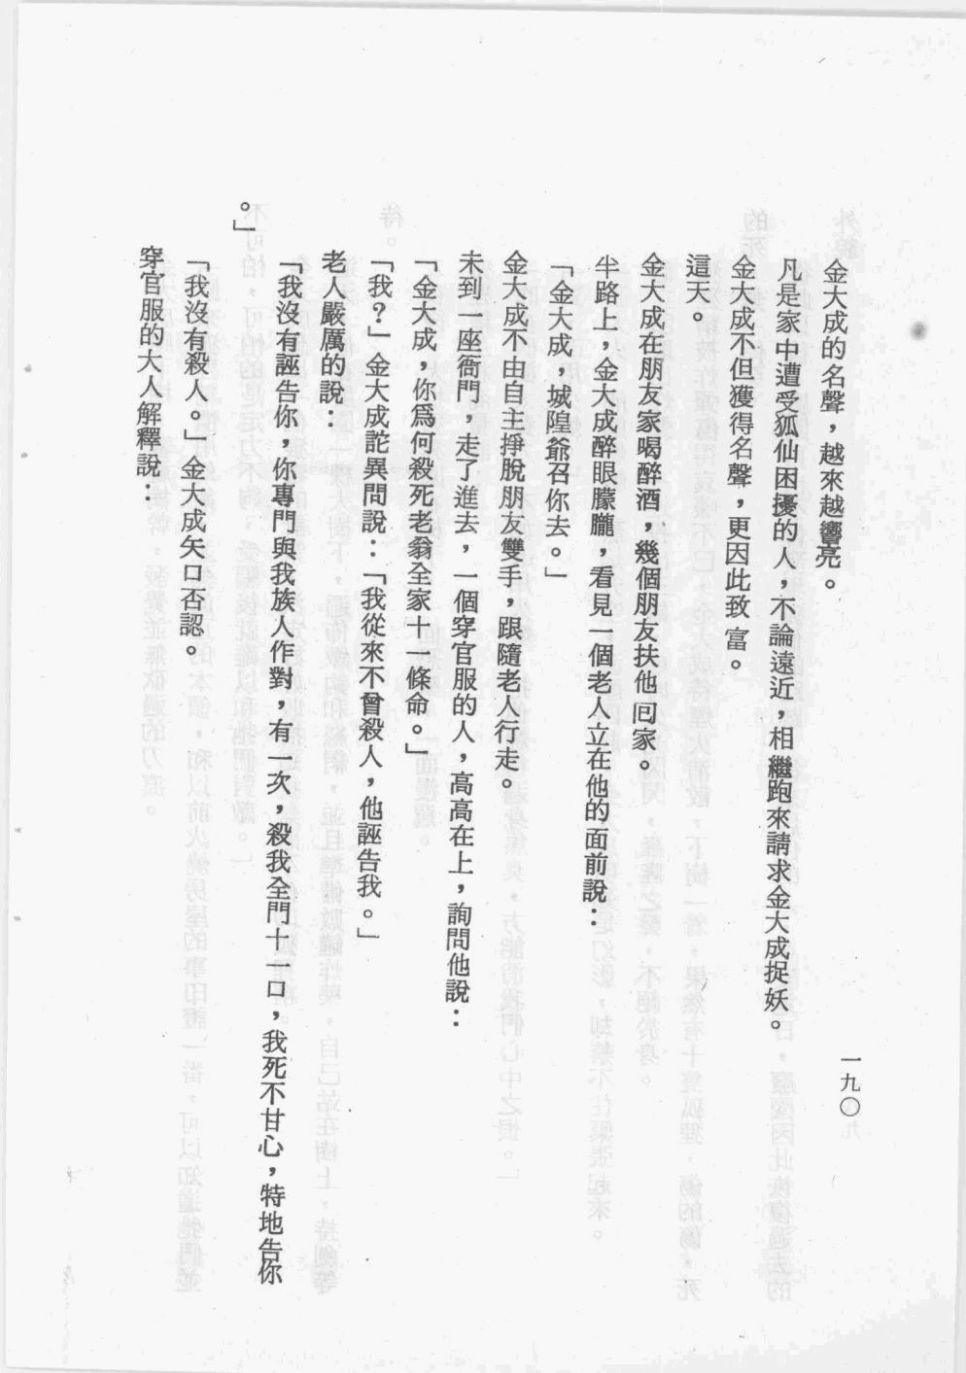 一九〇
金大成的名聲，越來越響亮。
凡是家中遭受狐仙困擾的人，不論遠近，相繼跑來請求金大成捉妖。
金大成不但獲得名聲，更因此致富。
這天。
金大成在朋友家喝醉酒，幾個朋友扶他回家。
半路上，金大成醉眼朦朧，看見一個老人立在他的面前說：
「金大成，城隍爺召你去。」
金大成不由自主掙脫朋友雙手，跟隨老人行走。
未到一座衙門，走了進去，一個穿官服的人，高高在上，詢問他說：
「金大成，你爲何殺死老翁全家十一條命。」
「我？」金大成詫異問說：「我從來不曾殺人，他誣告我。」
老人嚴厲的說：
「我沒有誣告你，你專門與我族人作對，有一次，殺我全門十一口，我死不甘心，特地告你
。」
「我沒有殺人。」金大成矢口否認。
穿官服的大人解釋說：